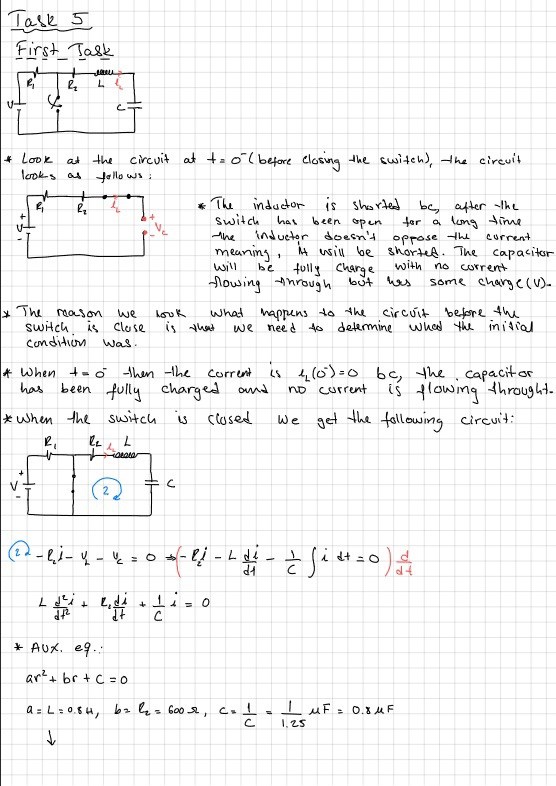 Task 5
First Task
R₁ R₂ L i_L
V C
* Look at the circuit at t = 0⁻ (before closing the switch), the circuit
looks as follows:
R₁ R₂ i_L
+ V - + V_C -
* The inductor is shorted bc, after the
switch has been open for a long time
the inductor doesn't oppose the current
meaning, it will be shorted. The capacitor
will be fully charge with no current
flowing through but has some charge (V).
* The reason we look what happens to the circuit before the
switch is close is that we need to determine what the initial
condition was.
* When t = 0⁻ then the current is i_L(0⁻) = 0 bc, the capacitor
has been fully charged and no current is flowing throught.
* When the switch is closed we get the following circuit:
R₁ R₂ i_L L
+ V - 2 C
2 -R₂i - V_L - V_C = 0 ⇒ (-R₂i - L di/dt - 1/C ∫ i dt = 0) d/dt
L d²i/dt² + R₂ di/dt + 1/C i = 0
* Aux. eq.:
ar² + br + c = 0
a = L = 0.8H, b = R₂ = 600 Ω, c = 1/C = 1/1.25 μF = 0.8 μF
↓